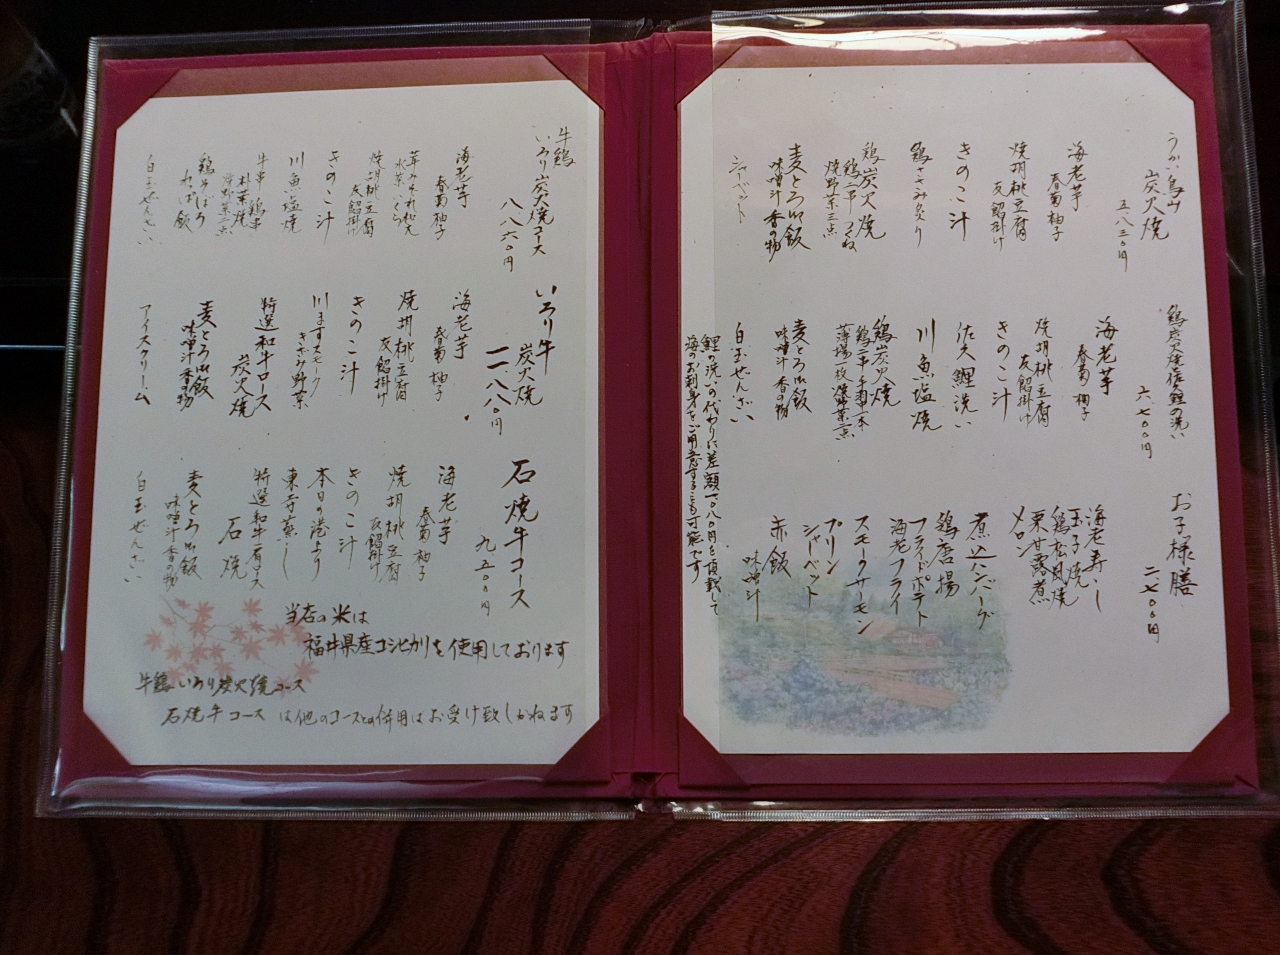 うかい鳥山
炭火焼
五、八三〇円
海老芋
春菊 柚子
焼胡桃豆腐
友餡掛け
きのこ汁
鶏ささみ炙り
鶏炭火焼
鶏二串 つくね
焼野菜三点
麦とろ御飯
味噌汁 香の物
シャーベット
六、七〇〇円
海老芋
春菊 柚子
焼胡桃豆腐
友餡掛け
きのこ汁
佐久鯉洗い
川魚塩焼
鶏炭火焼
麦とろ御飯
味噌汁 香の物
白玉ぜんざい
鯉の洗いの代わりに差額一、〇八〇円を頂戴して
海のお刺身をご用意することも可能です
お子様膳
二、七〇〇円
海老寿し
玉子焼
鶏松風焼
栗甘露煮
メロン
煮込ハンバーグ
鶏唐揚
フライドポテト
海老フライ
スモークサーモン
プリン
シャーベット
赤飯
味噌汁
牛鶏
いろり炭火焼コース
八、八六〇円
海老芋
春菊 柚子
水菜 いくら
焼胡桃豆腐
友餡掛け
きのこ汁
川魚塩焼
牛串 鶏串
朴葉焼
焼野菜二点
鶏そぼろ
わっぱ飯
白玉ぜんざい
いろり牛
炭火焼
一一、八八〇円
海老芋
春菊 柚子
焼胡桃豆腐
友餡掛け
きのこ汁
川ますスモーク
きざみ野菜
特選和牛ロース
炭火焼
麦とろ御飯
味噌汁 香の物
アイスクリーム
石焼牛コース
九、五〇〇円
海老芋
春菊 柚子
焼胡桃豆腐
友餡掛け
きのこ汁
本日の港より
東寺蒸し
特選和牛ロース
石焼
麦とろ御飯
味噌汁 香の物
白玉ぜんざい
当店の米は
福井県産コシヒカリを使用しております
牛鶏いろり炭火焼コース
石焼牛コース は他のコースとの併用はお受け致しかねます